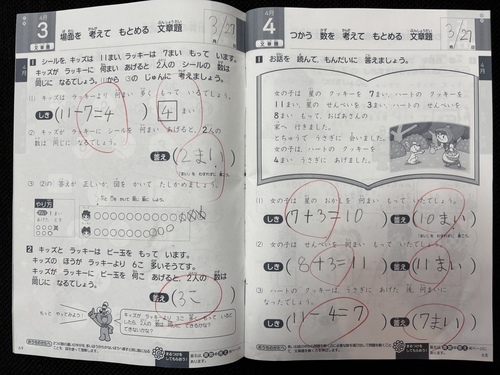 4月
3
文章題
場面を 考えて もとめる 文章題
3/27
4月
1 シールを、キッズは 11まい、ラッキーは 7まい もって います。
キッズが ラッキーに 何まい あげると 2人の シールの 数は
同じに なるでしょう。(1)から(3)の じゅんに 考えましょう。
(1) キッズは ラッキーより 何まい 多く もって いるでしょう。
しき (11-7=4) 4 まい
(2) キッズが ラッキーに シールを 何まい あげると、2人の
数は 同じに なるでしょう。
答え (2まい)
(3) (2)の 答えが 正しいか、図を かいて たしかめましょう。
やり方
2 キッズと ラッキーは ビー玉を もって います。
キッズの ほうが ラッキーより 6こ 多いそうです。
キッズが ラッキーに ビー玉を 何こ あげると、2人の 数は
同じに なるでしょう。
答え (3こ)
もっと やってみよう!
まるつけを
してもらおう!
4月
4
文章題
つかう 数を 考えて もとめる 文章題
3/27
4月
1 お話を 読んで、もんだいに 答えましょう。
女の子は 星の クッキーを 7まい、ハートの クッキーを
11まい、星の せんべいを 3まい、ハートの せんべいを
8まい もって、おばあさんの
家へ 行きました。
とちゅうで うさぎに 会いました。
女の子は、ハートの クッキーを
4まい うさぎに あげました。
(1) 女の子は 星の おかしを 何まい もって いたでしょう。
しき (7+3=10) 答え (10まい)
(2) 女の子は せんべいを 何まい もって いたでしょう。
しき (8+3=11) 答え (11まい)
(3) ハートの クッキーは、うさぎに あげた 後、何まいに
なったでしょう。
しき (11-4=7) 答え (7まい)
まるつけを
してもらおう!